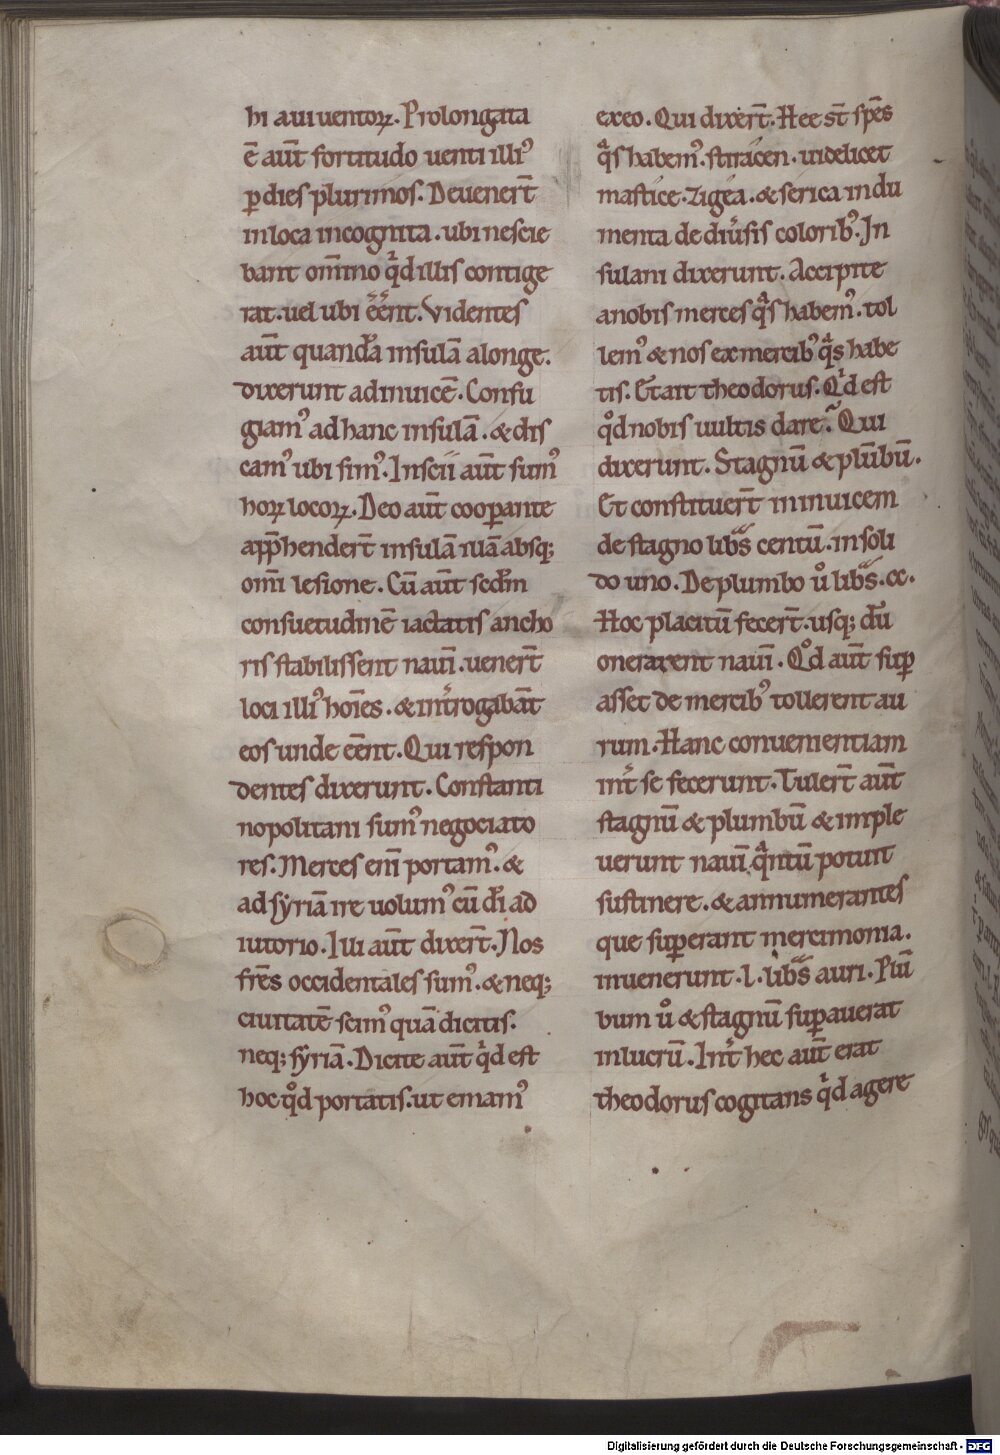 hi aut uentoꝝ. Prolongata
ē aūt fortitudo uenti illiꝰ
ꝑ dies plurimos. Deuener̄t
in loca incognita. ubi nescie
bant om̄ino qͥd illis contige
rat. uel ubi eēnt. Videntes
aūt quandā insulā alonge.
dixerunt adinuicē. Confu
giamꝰ ad hanc insulā. & dis
camꝰ ubi simꝰ. Inscii aūt sumꝰ
hoꝝ locoꝝ. Deo aūt cooꝑante
app̄hender̄t insulā illā absq;
om̄i lesione. Cū aūt scd̄m
consuetudinē iactatis ancho
ris stabilissent nauī. uener̄t
loci illiꝰ hoīes. & int̄rogabāt
eos unde eēnt. Qui respon
dentes dixerunt. Constanti
nopolitani sumꝰ negociato
res. Merces enī portamꝰ. &
ad syriā ire uolumꝰ cū dī ad
iutorio. Illi aūt dixer̄t. Nos
fr̄es occidentales sumꝰ. & neq;
ciuitatē scimꝰ quā dicitis.
neq; syriā. Dicite aūt qͥd est
hoc qͦd portatis. ut emamꝰ
exeo. Qui dixer̄t. Hee st̄ spēs
qͣs habemꝰ. stiracen. uidelicet
mastice. zigea. & serica indu
menta de diuͥsis coloribꝰ. In
sulani dixerunt. Accipite
anobis merces qͣs habemꝰ. tol
lemꝰ & nos ex mercibꝰ qͣs habe
tis. Et ait theodorus. Qͥd est
qͦd nobis uultis dare? Qui
dixerunt. Stagnū & plūbū.
Et constituer̄t ininuicem
de stagno libͣs centū. in soli
do uno. De plumbo uͦ libͣs. cc.
Hoc placitū fecer̄t. usq; dū
onerarent nauī. Qͦd aūt suꝑ
asset de mercibꝰ tollerent au
rum. Hanc conuenientiam
int̄ se fecerunt. Tuler̄t aūt
stagnū & plumbū & imple
uerunt nauī qͣntū potuit
sustinere. & annumerantes
que suꝑerant mercimonia.
inuenerunt. l. libͣs auri. Plū
bum uͦ & stagnū suꝑauerat
in lucrū. Int̄ hec aūt erat
theodorus cogitans qͥd agere
Digitalisierung gefördert durch die Deutsche Forschungsgemeinschaft - DFG